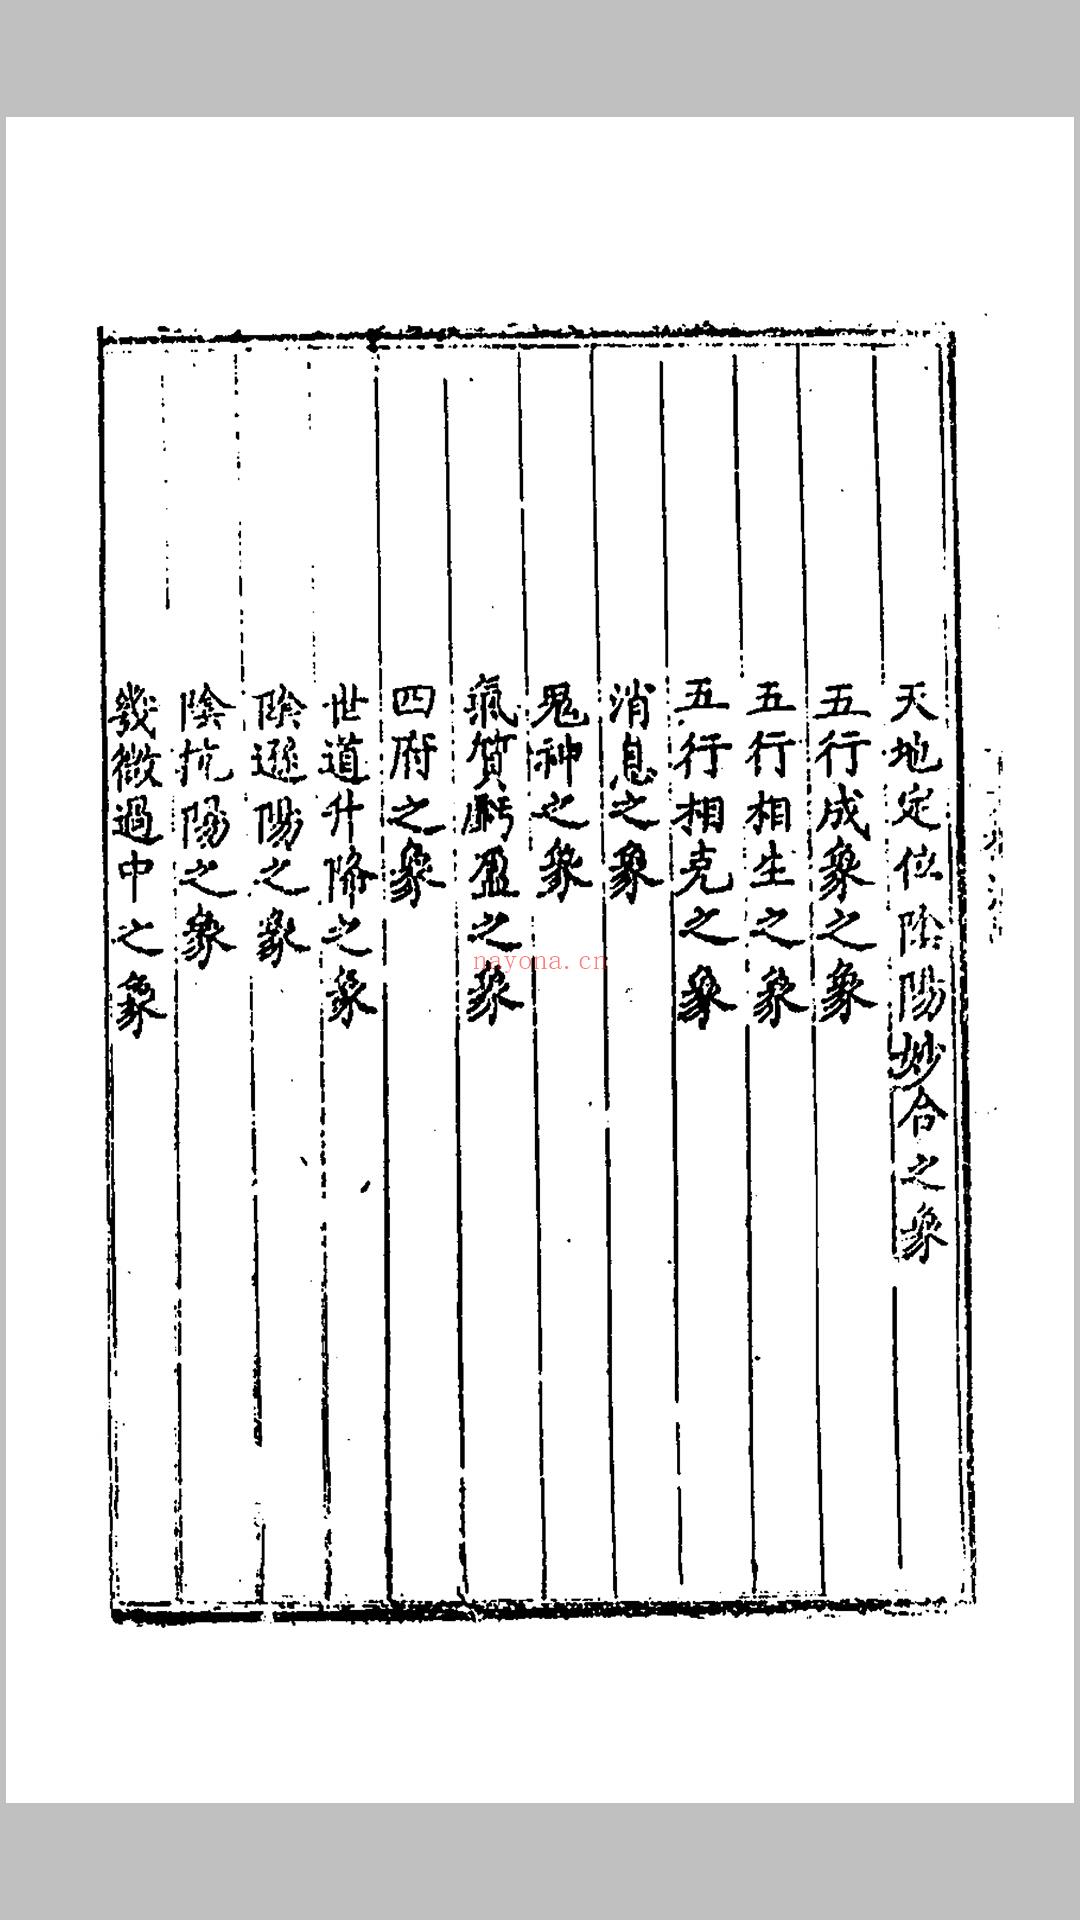 天地定位陰陽妙合之象
五行成象之象
五行相生之象
五行相克之象
消息之象
鬼神之象
氣質虧盈之象
四府之象
世道升降之象
陰遜陽之象
陰抗陽之象
幾微過中之象
nayona.cn